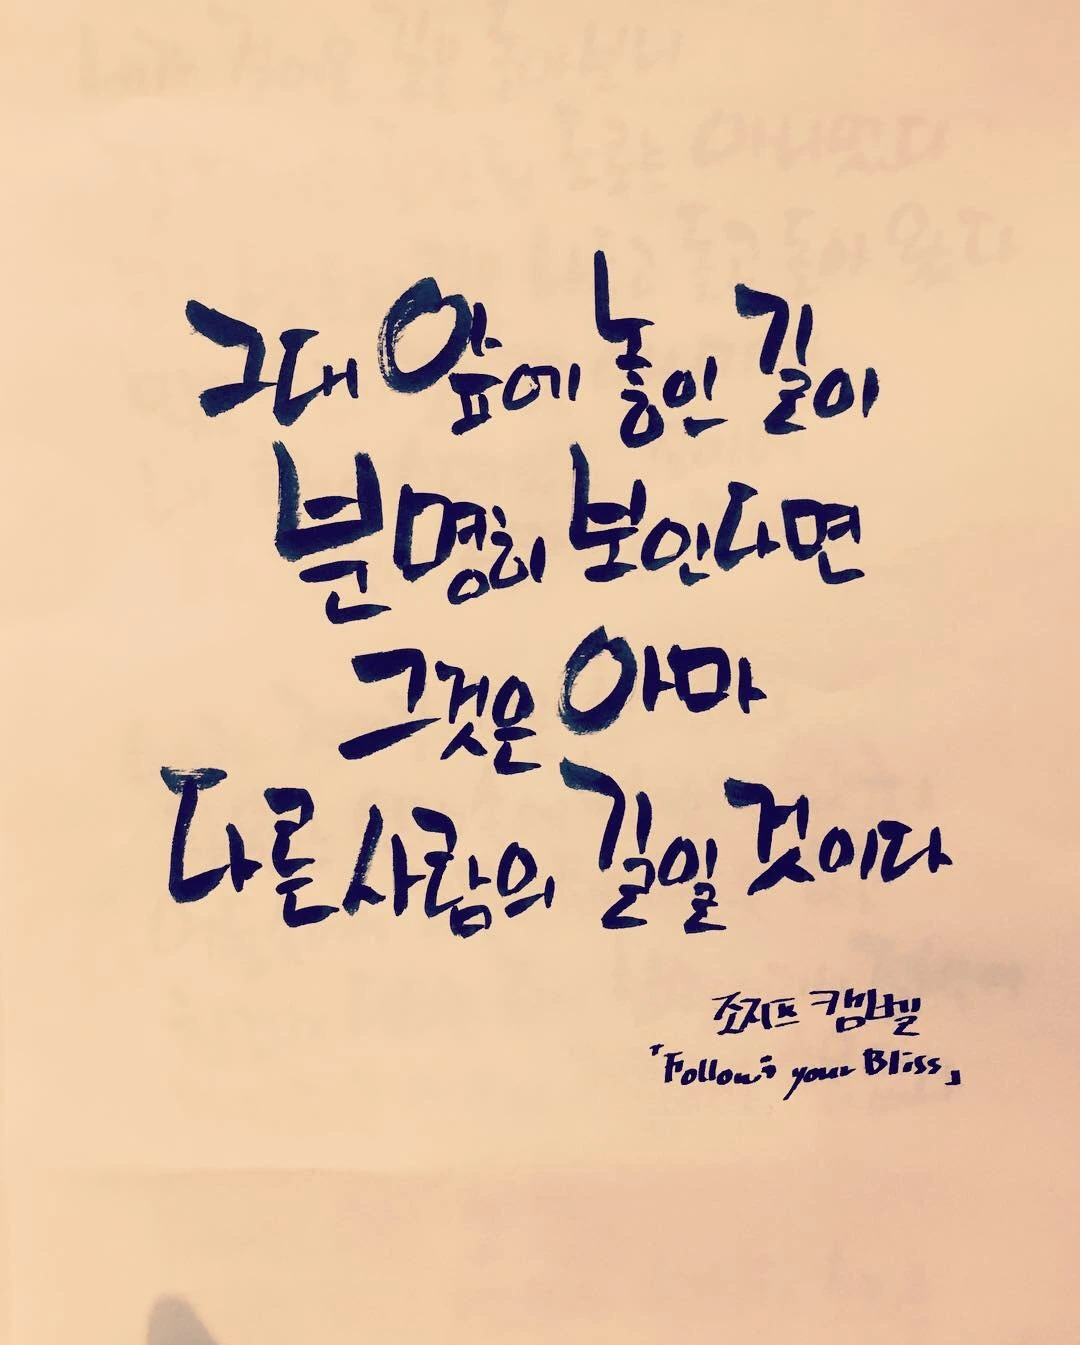 그대 앞에 놓인 길이
분명히 보인다면
그것은 아마
다른 사람의 길일 것이다
조지프 캠벨
「Follow your Bliss」